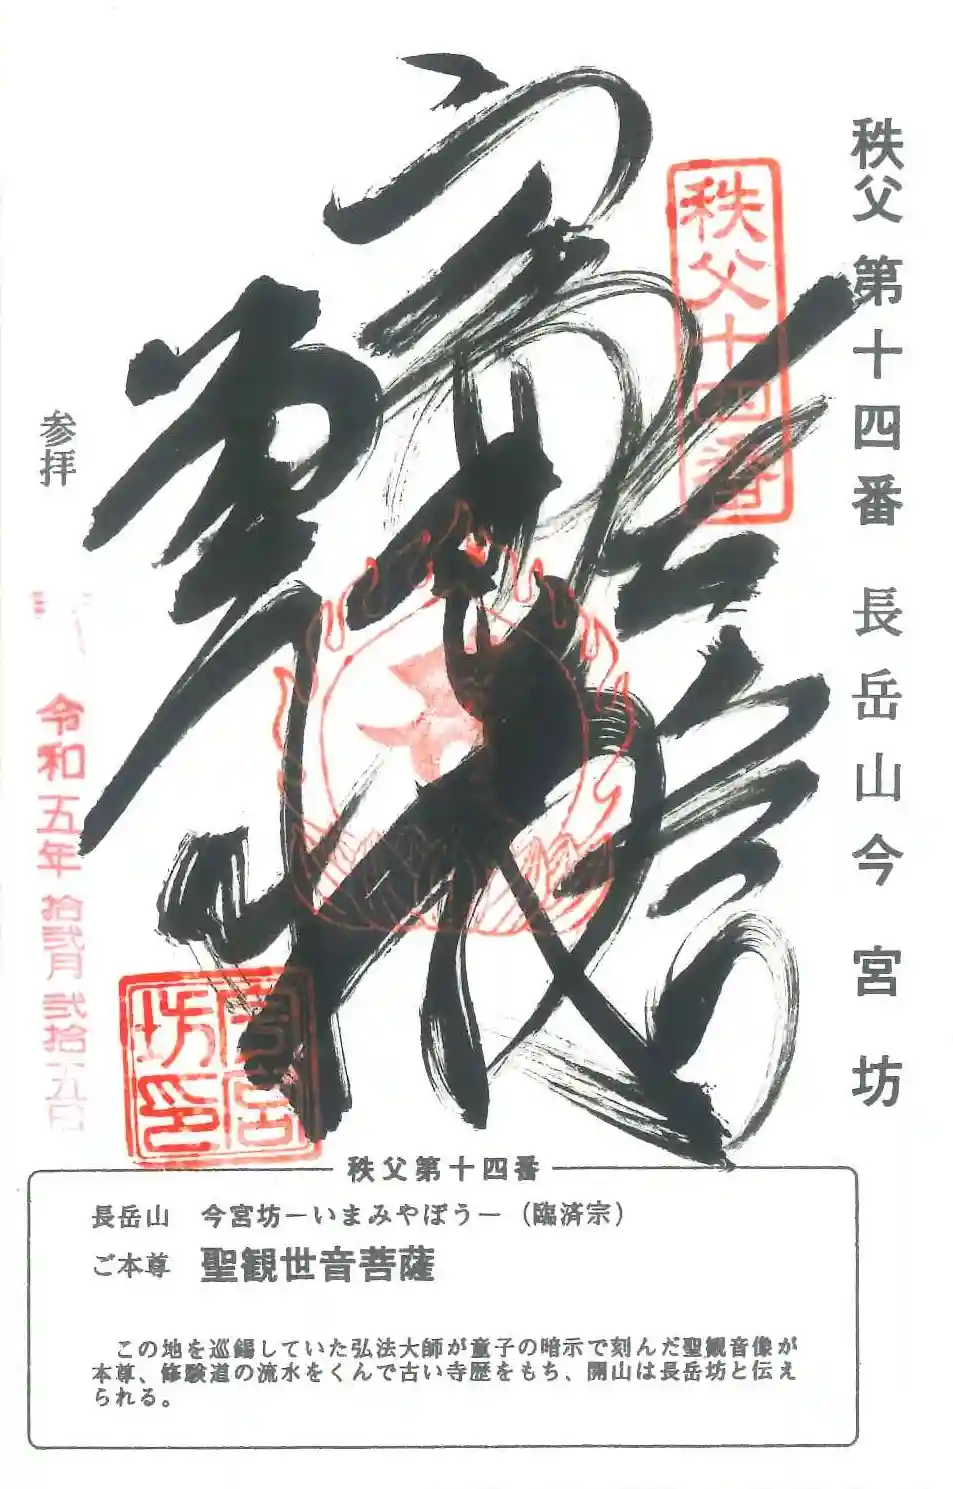 秩父第十四番 長岳山今宮坊
秩父十四番
参拝
令和五年拾弐月弐拾五日
秩父第十四番
長岳山 今宮坊－いまみやぼう－（臨済宗）
ご本尊 聖観世音菩薩
この地を巡錫していた弘法大師が童子の暗示で刻んだ聖観音像が
本尊、修験道の流水をくんで古い寺歴をもち、開山は長岳坊と伝え
られる。